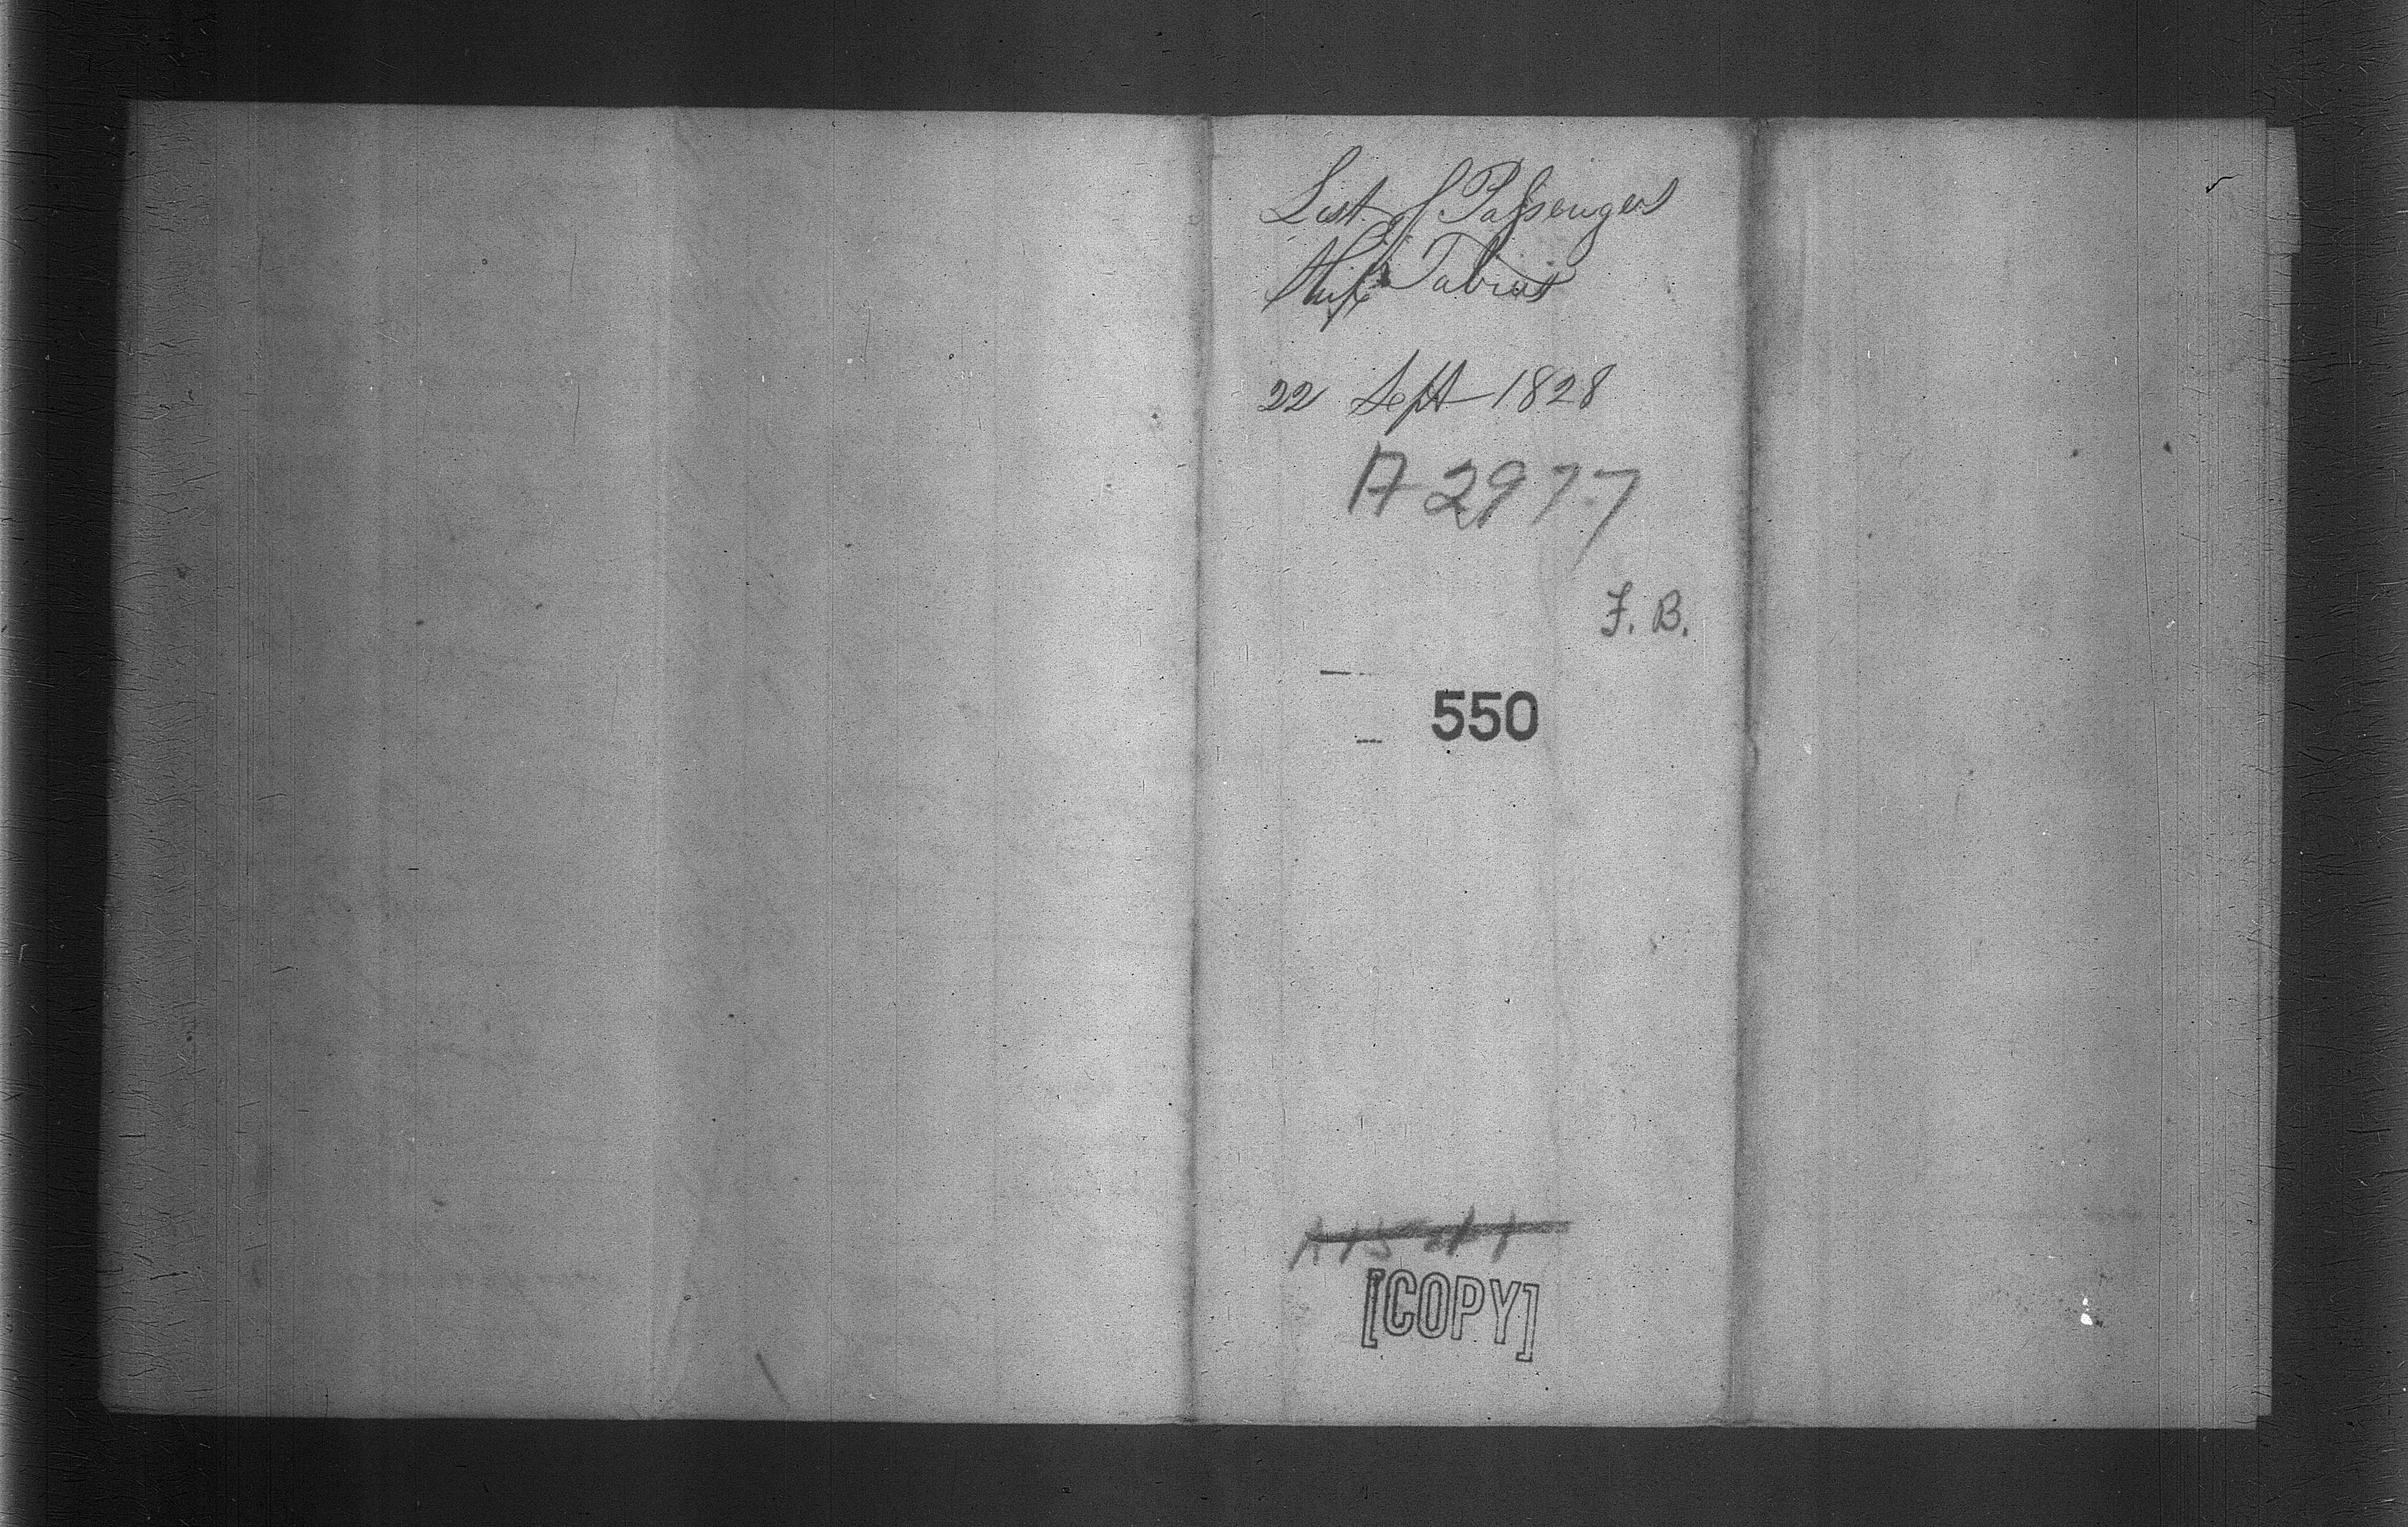 List of Passengers
Ship Fabius
22 Sept 1828
A 2977
F. B.
550
[COPY]